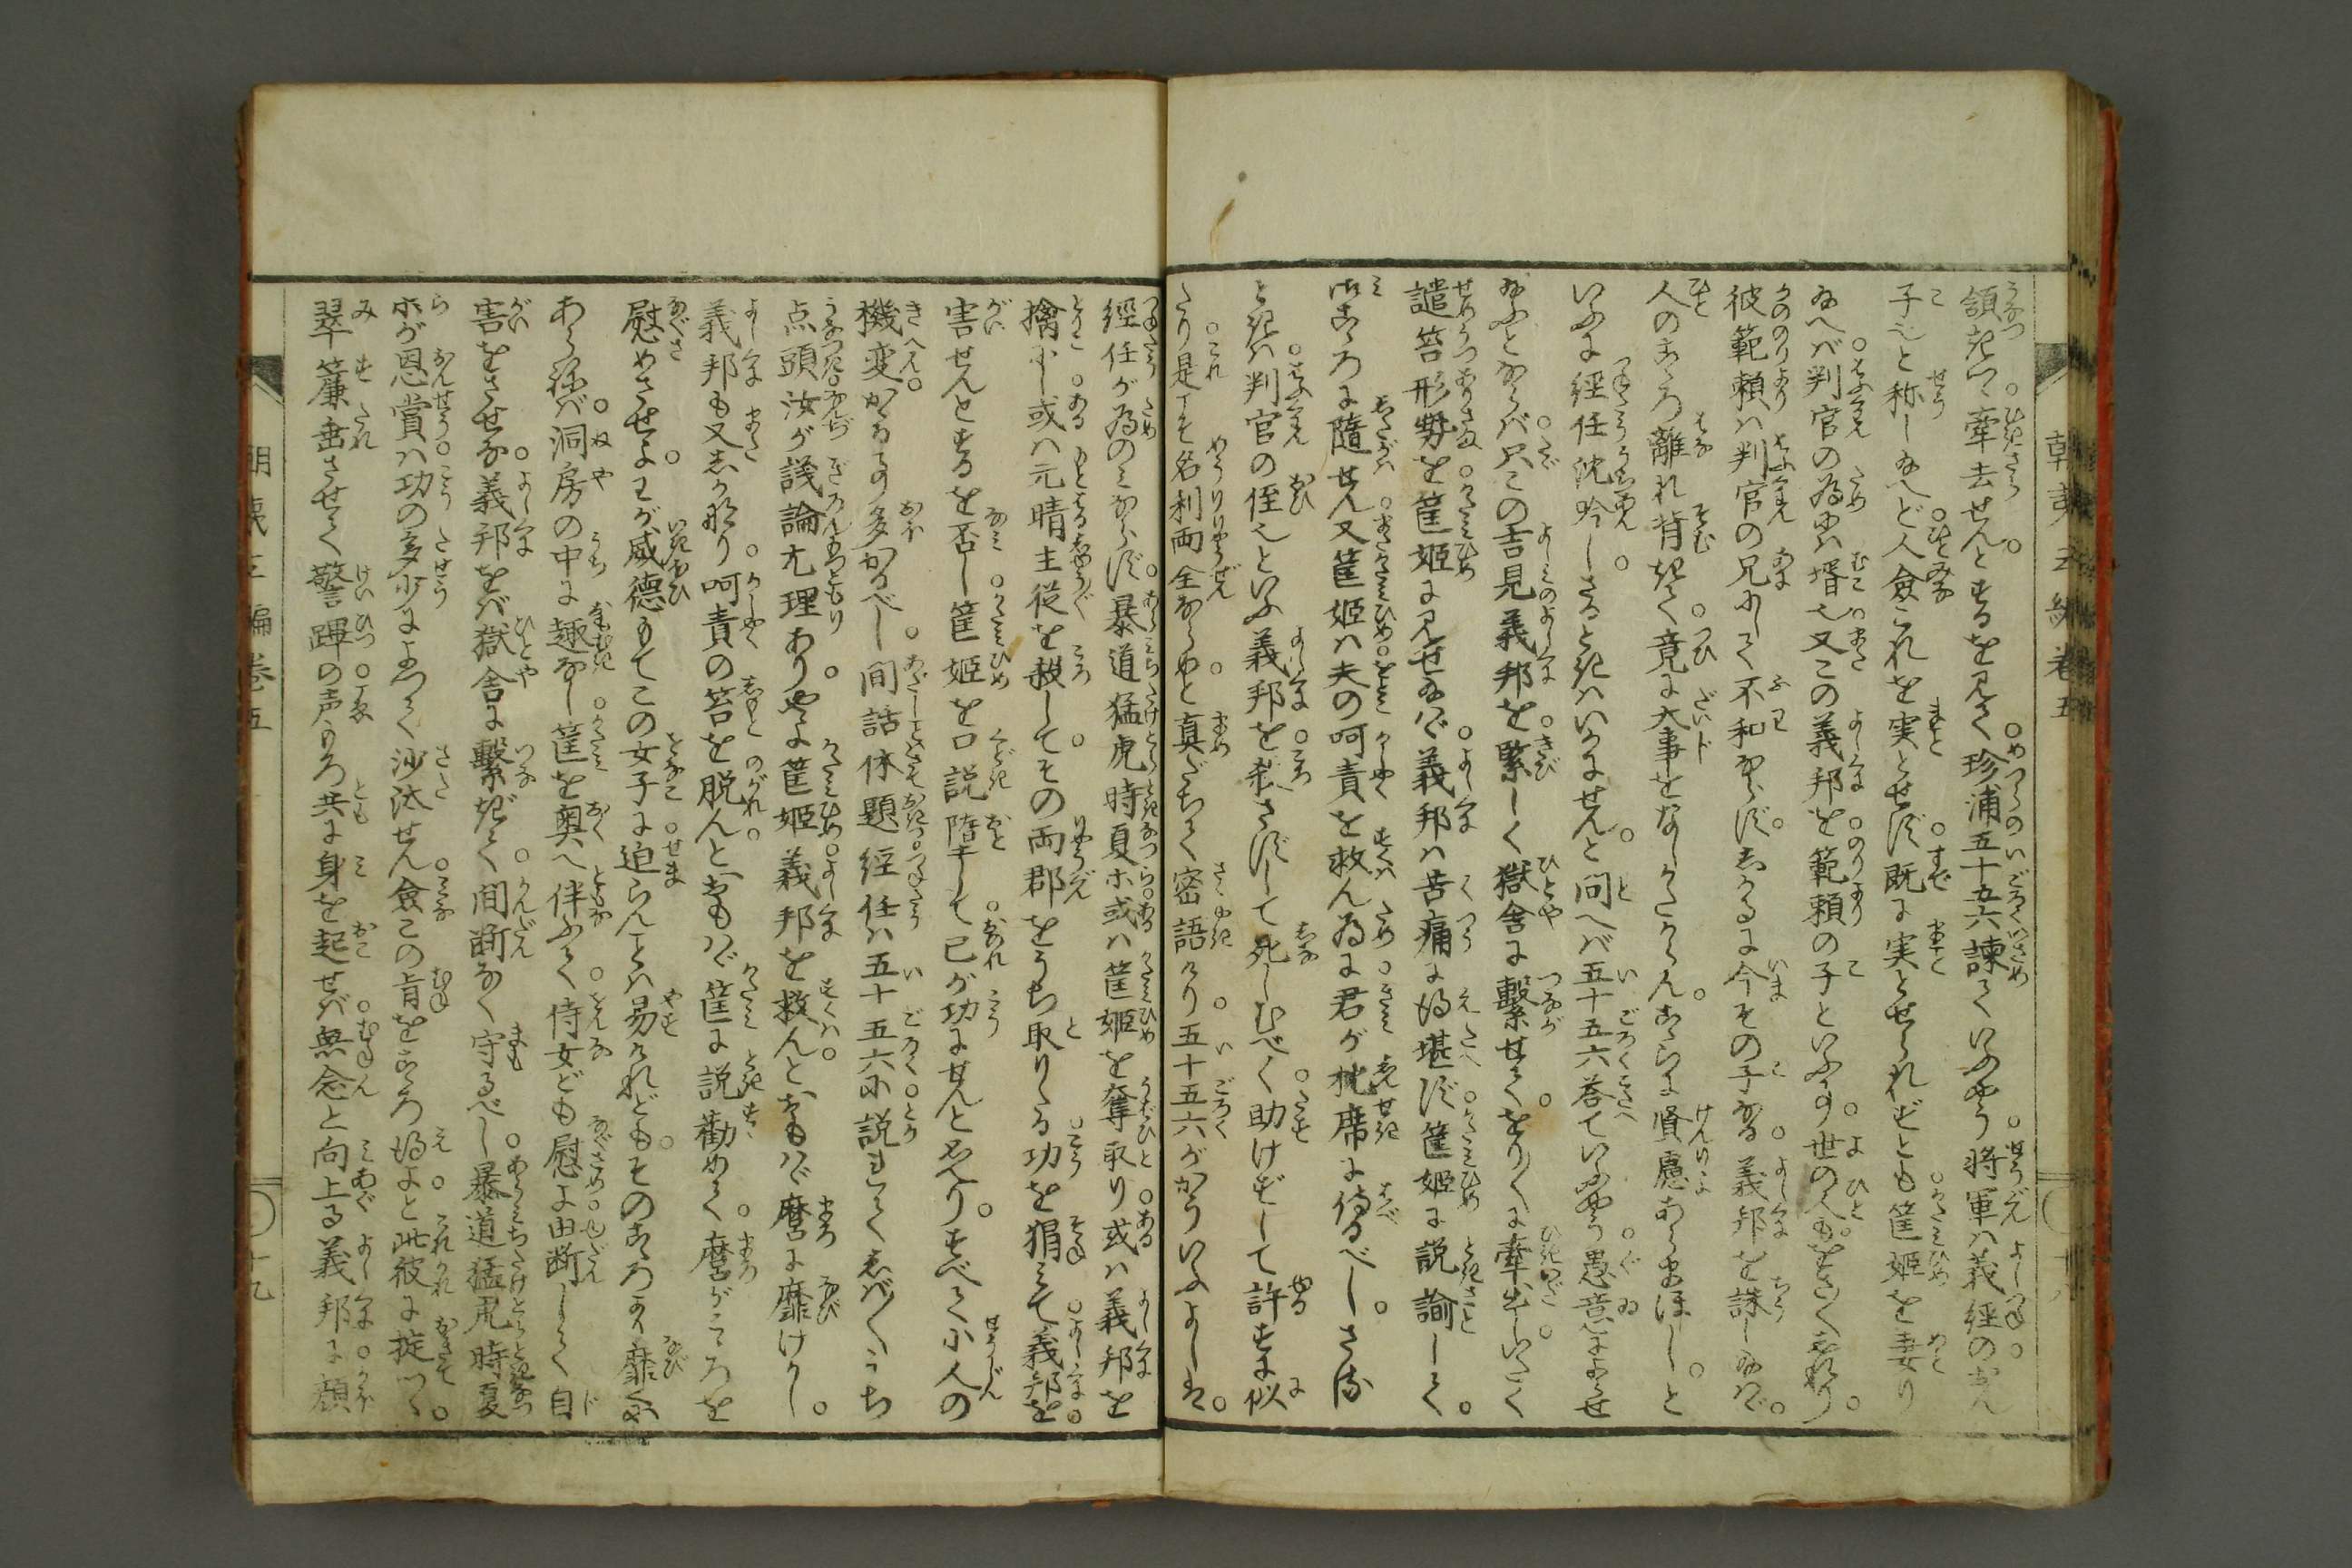 朝夷三編巻五
頷きつゝ牽去せんとするを見て珍浦五十五六諫ていふやう將軍ハ義經のおん
子と称し給へど人僉これを実とせず既に実とせられずとも筐姫を妻り
給へバ判官の為にハ壻也又この義邦を範頼の子といふ事世の人もをさ〳〵しれり
彼範頼ハ判官の兄にして不和ならずしかるに今その子なる義邦を誅し給ハゞ
人のこゝろ離れ背きて竟に大事をなしがたからんこゝらに賢慮あらまほしと
いふに経任沈吟しさるときハいかにせんと問へバ五十五六荅ていふやう愚意にまかせ
給ふとならバ只この吉見義邦を緊しく獄舎に繋せてをり〳〵に牽出しいたく
譴笞形勢を筐姫に見せ給ハゞ義邦ハ苦痛に得堪ず筐姫に説諭して
みこゝろに隨せん又筐姫ハ夫の呵責を救ん為に君が枕席に侍るべしさる
ときハ判官の侄也といふ義邦を殺さずして死しむべく助けずして許すに似
たり是こそ名利両全ならめと真だちて密語けり五十五六がかういふよしは
經任が為のミならず暴道猛虎時夏ホ或ハ筐姫を奪取り或ハ義邦を
擒にし或ハ元晴主従を殺してその両郡をうち取りたる功を猜みて義邦を
害せんとするを否し筐姫を口説墮して己が功にせんと思へりすべて小人の
機変かゝる事多かるべし間話休題經任ハ五十五六に説れてしバ〳〵うち
点頭汝が議論尤理ありやよ筐姫義邦を救んとおもハゞ麿に靡けかし
義邦も又しかなり呵責の笞を脱んとおもハゞ筐に説勸めて麿がこゝろを
慰めさせよわが威德もてこの女子に迫らんことハ易けれどもそのこゝろより靡くに
あらねバ洞房の中に趣なし筐を奥へ伴ふて侍女ども慰よ由断して自
害をさせな義邦をバ獄舎に繋ぎて間断なく守るべし暴道猛虎時夏
ホが恩賞ハ功の多少によつて沙汰せん僉この旨をこゝろ得よと此彼に掟つゝ
翠簾垂させて警蹕の声もろ共に身を起せバ無念と向上る義邦に顔
朝夷三編巻五
十九